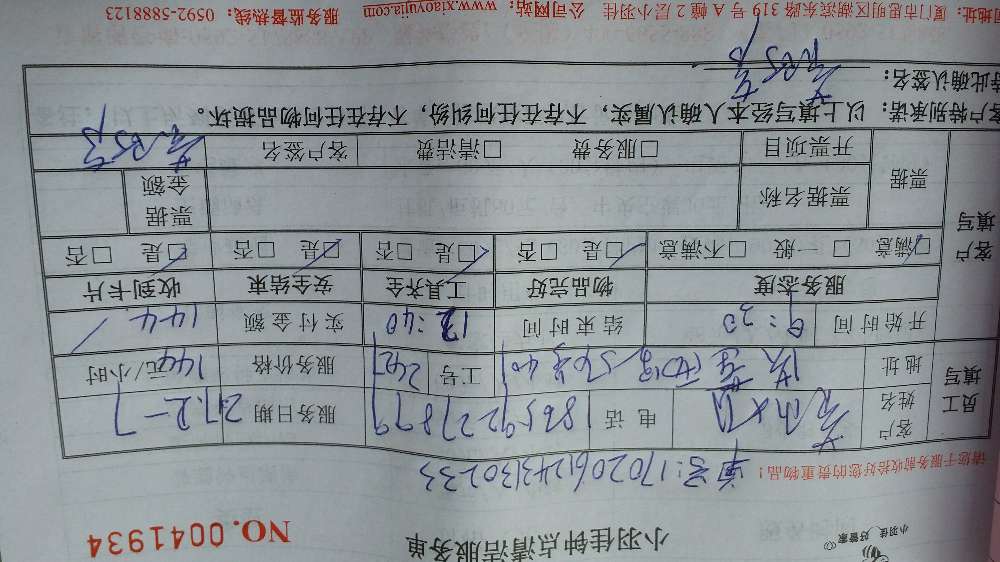 小羽佳 好管家
小羽佳钟点清洁服务单
NO.0041934
单号:1702061243130233
请您于服务前收拾好您的贵重物品!
员工填写
客户姓名
电话 18659227879
服务日期 2017.2-7
地址
工号 2427
服务价格 144元/小时
开始时间 9:20
结束时间 12:40
实付金额 144
客户填写
服务态度 物品完好 工具齐全 安全结束 收到卡片
☑满意 □一般 □不满意 ☑是 □否 ☑是 □否 ☑是 □否 ☑是 □否
票据
票据名称
票据金额
开票项目 □服务费 □清洁费
客户签名
客户特别承诺:以上填写经本人确认属实,不存在任何纠纷,不存在任何物品损坏。
特此确认签名:
司地址:厦门市思明区湖滨东路319号A幢2层小羽佳 公司网站:www.xiaoyujia.com 服务监督热线:0592-5888123